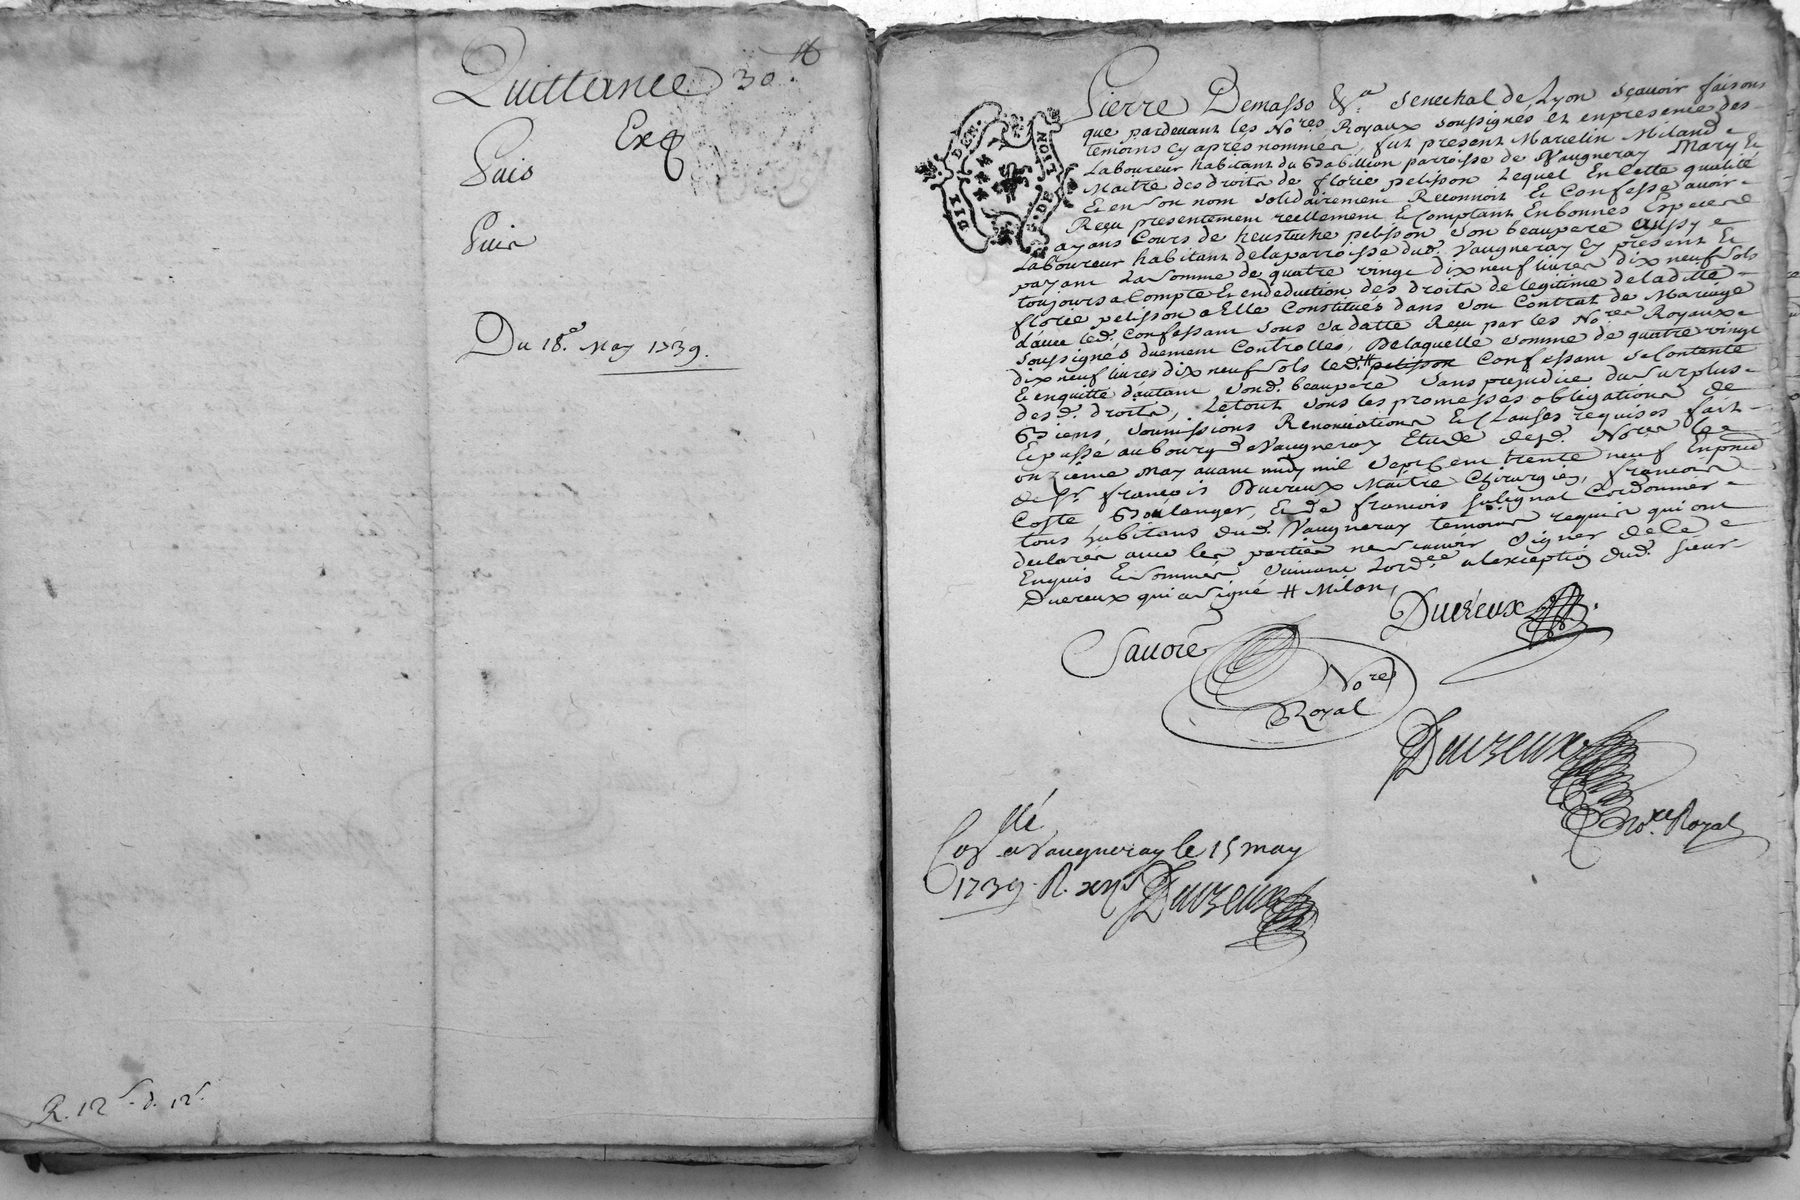 Quittance 30.
Exp
Puis
Puis
Du 18.e May 1739.
R. 12 s. d. 12 s.
DIX DEN.
G. DE LION
Pierre Demasso &.a senechal de Lyon sçavoir faisons
que pardevant les No.res Royaux soussignés et en presence des
temoins cy apres nommés, fut present Marcelin Miland
Laboureur habitant du parroisse de Vaugneray Mary Et
Maitre des droits de florie pelisson Lequel En Cette qualité
Et en son nom solidairement Reconnoit Et Confesse avoir
Reçu presentement reellement Et Comptant En bonnes Especes
ayans Cours de heustache pelisson son beaupere aussy
Laboureur habitant de la parroisse dud. Vaugneray Cy present Et
payant La somme de quatre vingt dix neuf livres dix neuf sols
toujours a Compte Et en deduction des droits de legitime de laditte
florie pelisson a Elle Constitués dans son Contrat de Mariage
d'avec led. Confessant sous sa datte Reçu par les No.res Royaux
soussignés duement Controllés, De laquelle somme de quatre vingt
dix neuf livres dix neuf sols led. # pelisson Confessant se Contente
Et en quitte d'autant sond. beaupere sans prejudice du surplus
desd. droits, Le tout sous les promesses obligations de
Biens, soumissions Renonciations Et Clauses requises fait
Et passé au bourg de Vaugneray Etude desd. No.res le
onzieme May avant midy mil sept Cent trente neuf En pnce
de Sr. françois Ducreux Maitre Chirurgien, françois
Coste Boulanger, Et de françois Cordonnier
tous habitans dud. Vaugneray temoins requis qui ont
declarés avec les parties ne scavoir signer de ce
Enquis Et sommés suivant Lord.ce a l'exception dud. sieur
Ducreux qui a signé # Milan,
Ducreux
Savore
No.re
Royal
Ducreux
No.re Royal
Con.llé a Vaugneray le 15 may
1739. R. xii s. Ducreux